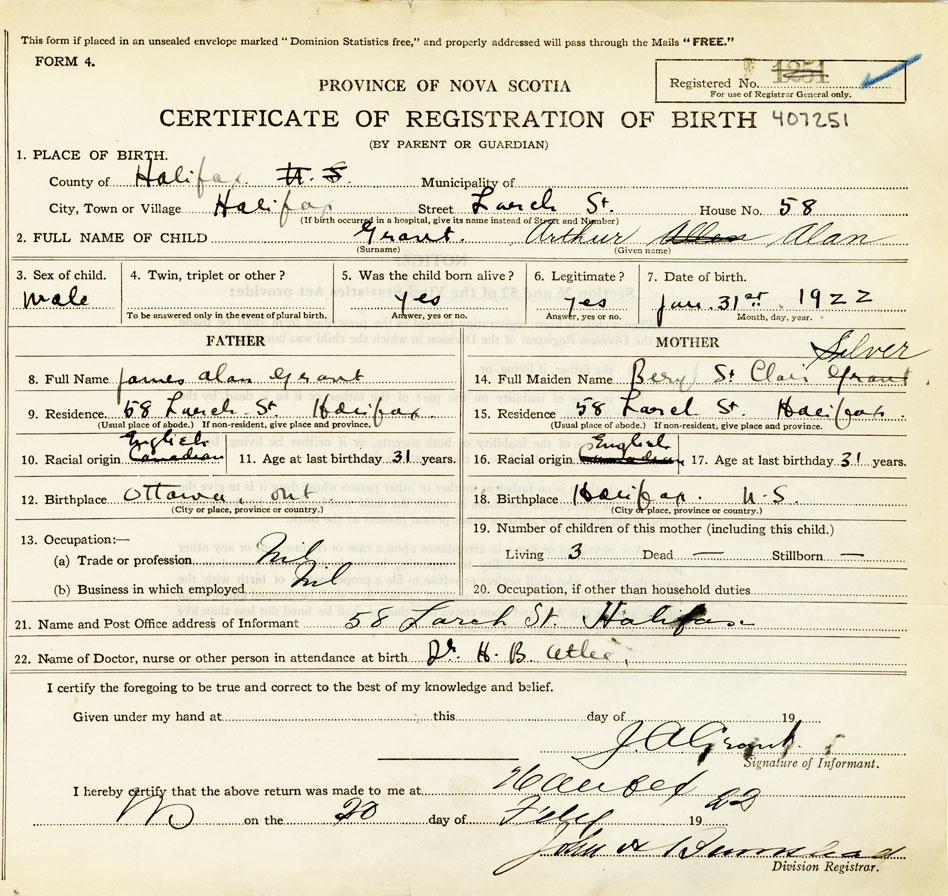 This form if placed in an unsealed envelope marked "Dominion Statistics free," and properly addressed will pass through the Mails "FREE."
FORM 4.
PROVINCE OF NOVA SCOTIA
Registered No. 1251
For use of Registrar General only.
CERTIFICATE OF REGISTRATION OF BIRTH 407251
(BY PARENT OR GUARDIAN)
1. PLACE OF BIRTH.
County of Halifax. N. S. Municipality of
City, Town or Village Halifax Street Larch St. House No. 58
(If birth occurred in a hospital, give its name instead of Street and Number)
2. FULL NAME OF CHILD Grant. Arthur Allan Alan
(Surname) (Given name)
3. Sex of child. 4. Twin, triplet or other? 5. Was the child born alive? 6. Legitimate? 7. Date of birth.
male yes yes Jan. 31st 1922
To be answered only in the event of plural birth. Answer, yes or no. Answer, yes or no. Month, day, year.
FATHER MOTHER
Silver
8. Full Name James Alan Grant 14. Full Maiden Name Beryl St Clair Grant
9. Residence 58 Larch St Halifax 15. Residence 58 Larch St. Halifax.
(Usual place of abode.) If non-resident, give place and province. (Usual place of abode.) If non-resident, give place and province.
English English
10. Racial origin Canadian 11. Age at last birthday 31 years. 16. Racial origin Canadian 17. Age at last birthday 31 years.
12. Birthplace Ottawa, Ont. 18. Birthplace Halifax. N. S.
(City or place, province or country.) (City or place, province or country.)
13. Occupation:— 19. Number of children of this mother (including this child.)
(a) Trade or profession Nil Living 3 Dead — Stillborn —
(b) Business in which employed Nil 20. Occupation, if other than household duties
21. Name and Post Office address of Informant 58 Larch St. Halifax
22. Name of Doctor, nurse or other person in attendance at birth Dr. H. B. Atlee,
I certify the foregoing to be true and correct to the best of my knowledge and belief.
Given under my hand at this day of 19
J. A. Grant.
Signature of Informant.
I hereby certify that the above return was made to me at Halifax
on the 20 day of Feby 19 22
John A
Division Registrar.